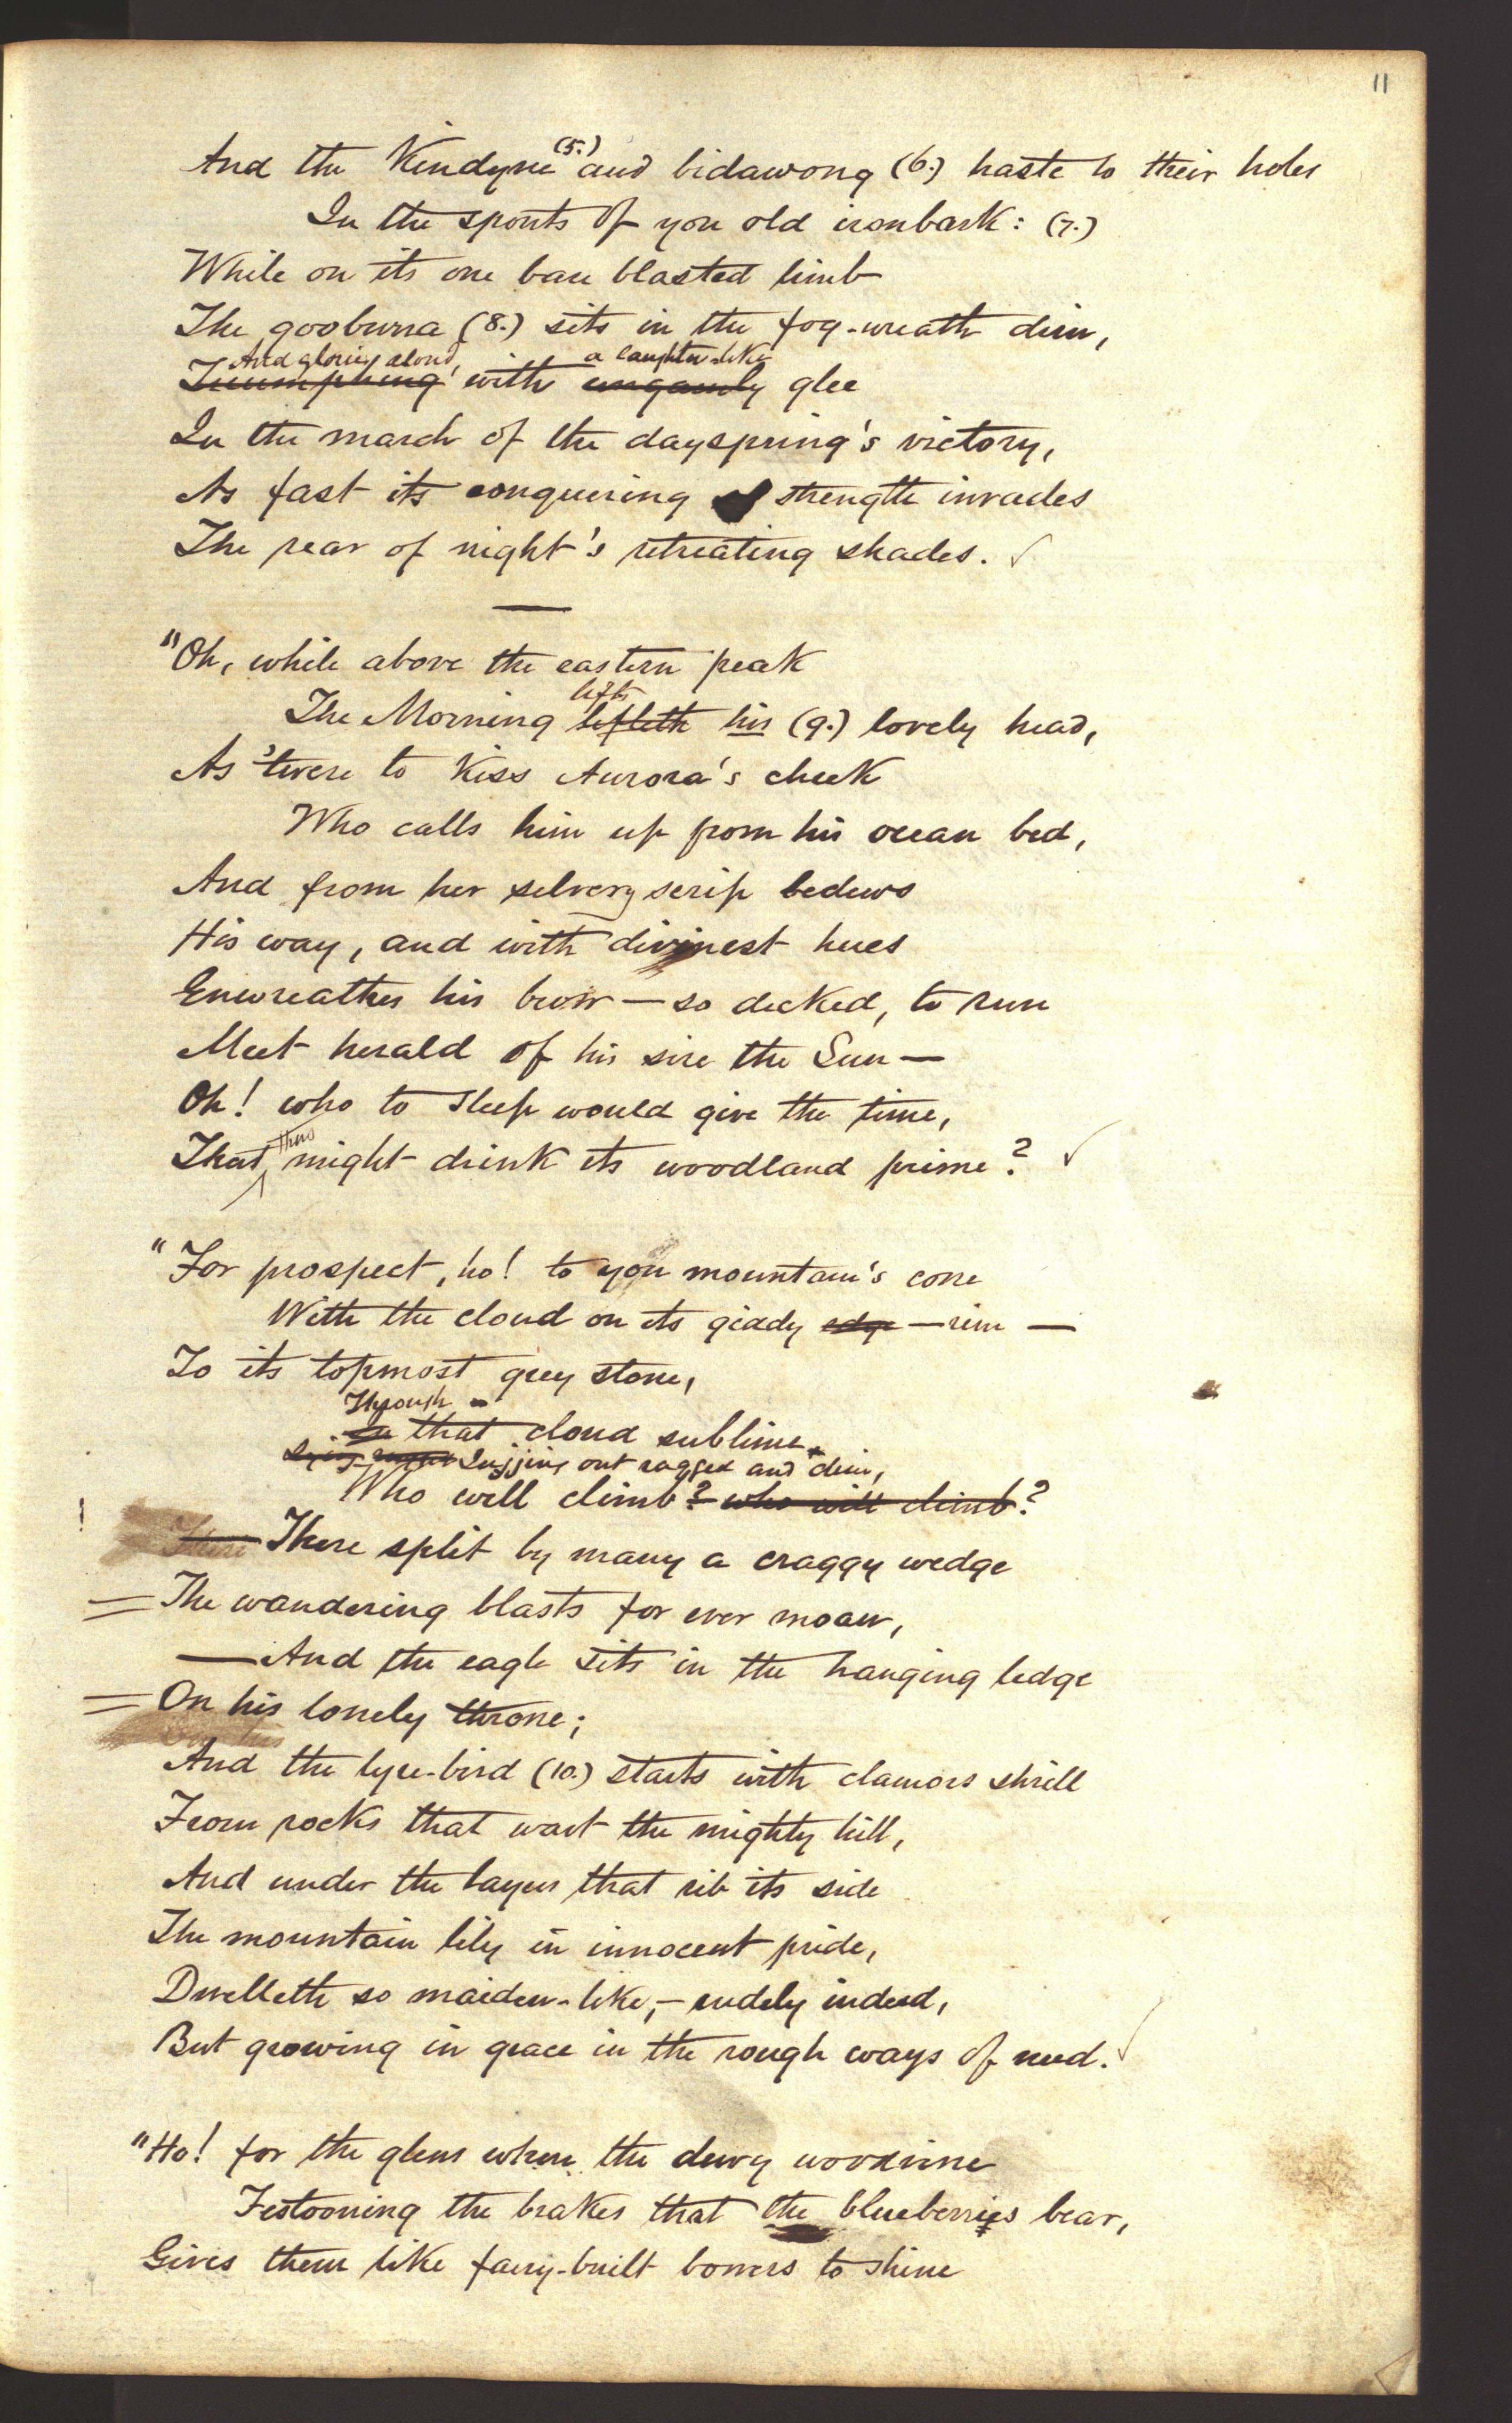 11
And the Kindyne (5.) and bidawong (6.) haste to their holes
In the spouts of yon old ironbark: (7.)
While on its one bare blasted limb
The gooburra (8.) sits in the fog-wreath dim,
And glories aloud, a laughter-like
Triumphing with ungainly glee
In the march of the dayspring's victory,
As fast its conquering strength invades
The rear of night's retreating shades.
"Oh, while above the eastern peak
lifts
The Morning lifteth his (9.) lovely head,
As 'twere to kiss Aurora's cheek
Who calls him up from his ocean bed,
And from her silvery scrip bedews
His way, and with divinest hues
Enwreathes his brow — so decked, to run
Meet herald of his sire the Sun —
Oh! who to sleep would give the time,
thus
That might drink its woodland prime?
"For prospect, ho! to yon mountain's cone
With the cloud on its giddy edge — rim —
To its topmost grey stone,
Through
that cloud sublime
Jujjing out ragged and dim,
Who will climb? who will climb?
! There There split by many a craggy wedge
The wandering blasts for ever moan,
— And the eagle sits in the hanging ledge
On his lonely throne;
And the lyre-bird (10.) starts with clamors shrill
From rocks that wart the mighty hill,
And under the layers that rib its side
The mountain lily in innocent pride,
Dwelleth so maiden-like, — rudely indeed,
But growing in grace in the rough ways of need.
"Ho! for the glens where the dewy woodvine
Festooning the brakes that the blueberries bear,
Gives them like faery-built bowers to shine